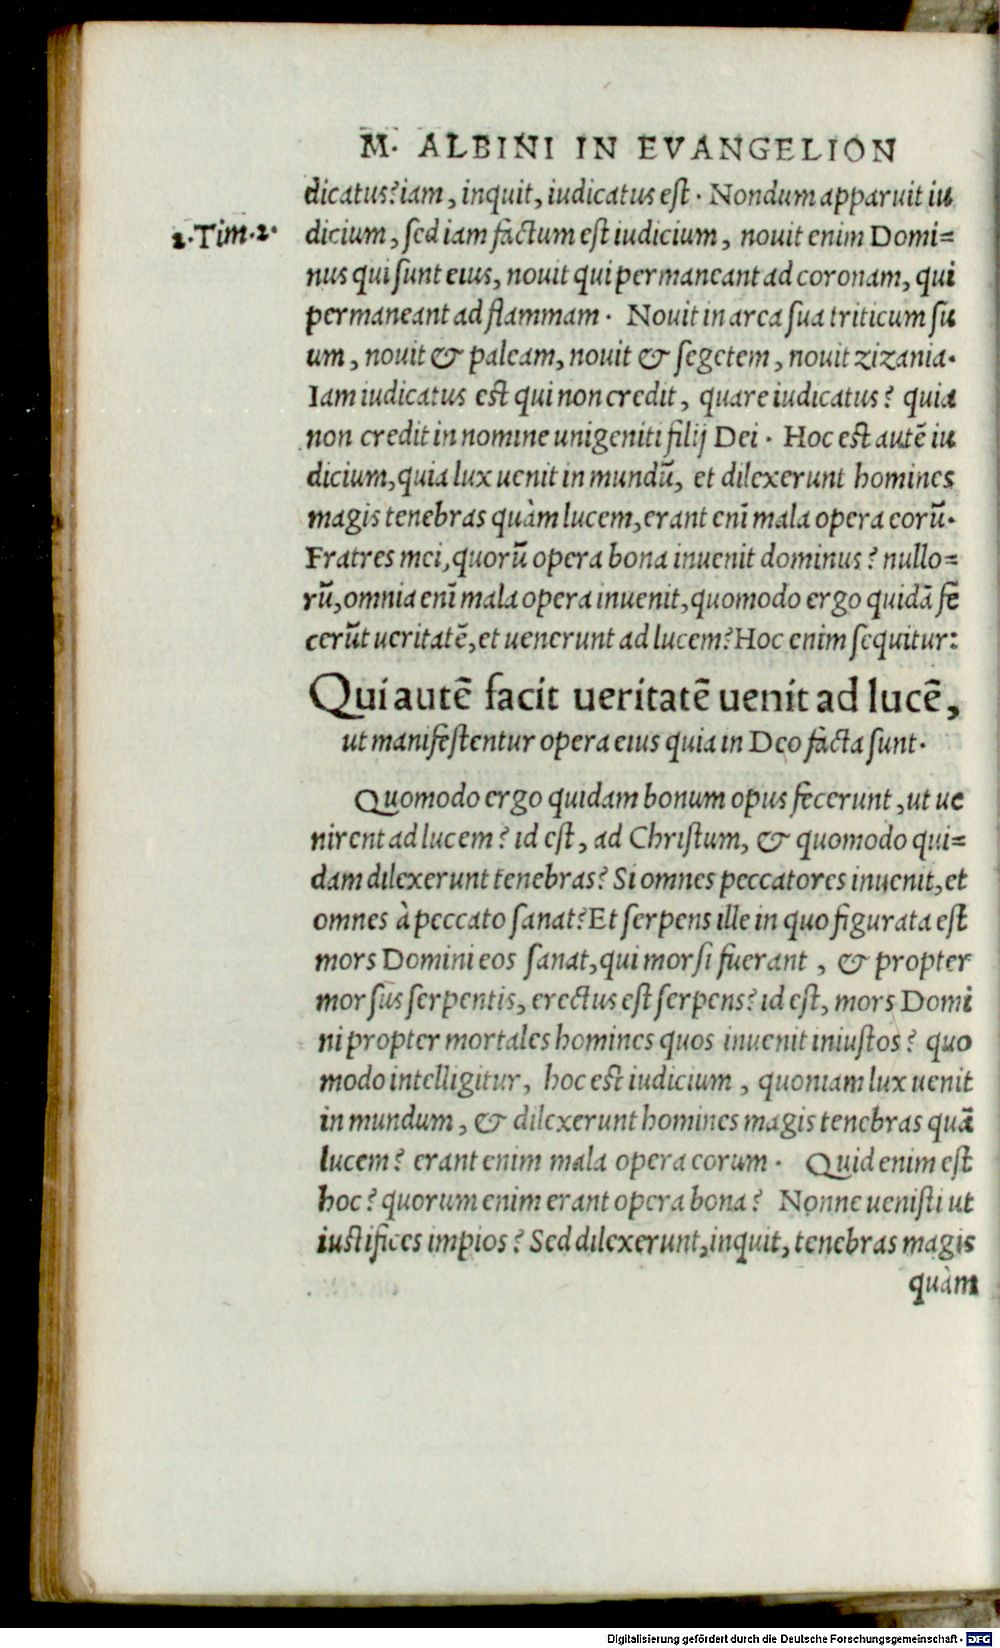 M. ALBINI IN EVANGELION
dicatus? iam, inquit, iudicatus est. Nondum apparuit iu
2. Tim. 2.
dicium, sed iam factum est iudicium, nouit enim Domi=
nus qui sunt eius, nouit qui permaneant ad coronam, qui
permaneant ad flammam. Nouit in area sua triticum su
um, nouit & paleam, nouit & segetem, nouit zizania.
Iam iudicatus est qui non credit, quare iudicatus? quia
non credit in nomine unigeniti filij Dei. Hoc est autē iu
dicium, quia lux uenit in mundū, et dilexerunt homines
magis tenebras quàm lucem, erant enī mala opera eorū.
Fratres mei, quorū opera bona inuenit dominus? nullo=
rū, omnia enī mala opera inuenit, quomodo ergo quidā fe
cerūt ueritatē, et uenerunt ad lucem? Hoc enim sequitur:
Qui autē facit ueritatē uenit ad lucē,
ut manifestentur opera eius quia in Deo facta sunt.
Quomodo ergo quidam bonum opus fecerunt, ut ue
nirent ad lucem? id est, ad Christum, & quomodo qui=
dam dilexerunt tenebras? Si omnes peccatores inuenit, et
omnes à peccato sanat? Et serpens ille in quo figurata est
mors Domini eos sanat, qui morsi fuerant, & propter
morsus serpentis, erectus est serpens? id est, mors Domi
ni propter mortales homines quos inuenit iniustos? quo
modo intelligitur, hoc est iudicium, quoniam lux uenit
in mundum, & dilexerunt homines magis tenebras quā
lucem? erant enim mala opera eorum. Quid enim est
hoc? quorum enim erant opera bona? Nonne uenisti ut
iustifices impios? Sed dilexerunt, inquit, tenebras magis
quàm
Digitalisierung gefördert durch die Deutsche Forschungsgemeinschaft - DFG